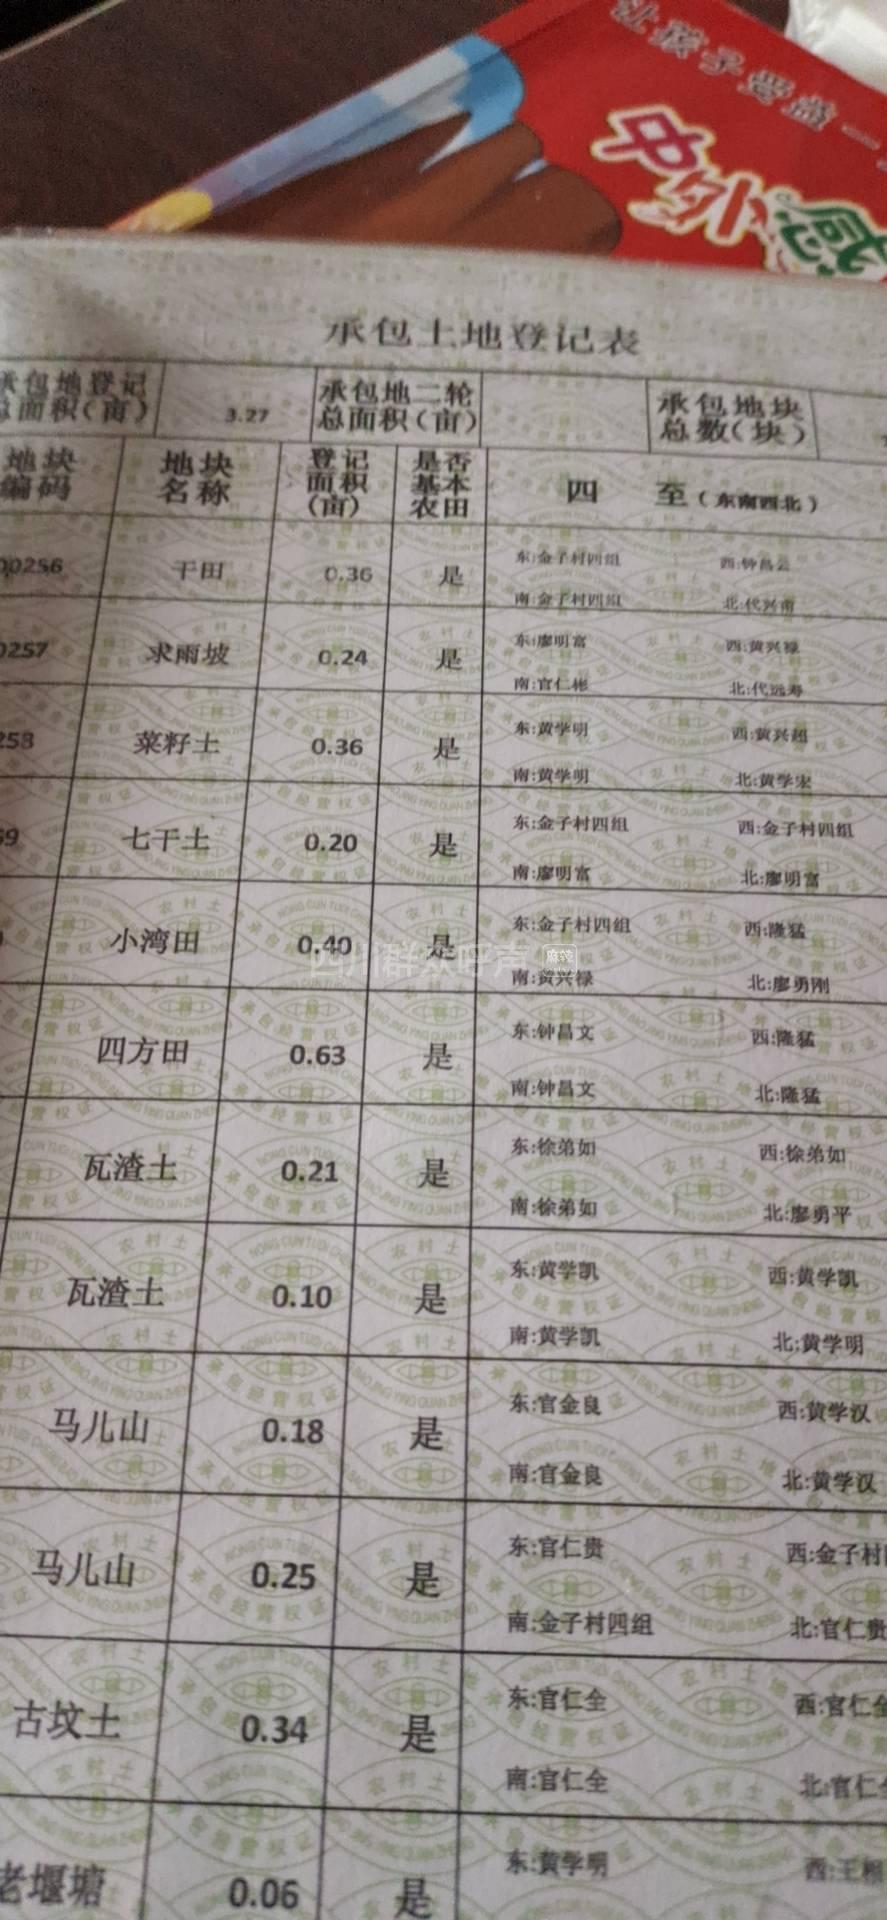 让孩子受益一
中外
感
承包土地登记表
承包地登记总面积(亩) 3.27 承包地二轮总面积(亩) 承包地块总数(块)
地块编码 地块名称 登记面积(亩) 是否基本农田 四 至(东南西北)
00256 干田 0.36 是 东:金子村四组 西:钟昌云
南:金子村四组 北:代兴甫
0257 求雨坡 0.24 是 东:廖明富 西:黄兴禄
南:官仁彬 北:代远寿
258 菜籽土 0.36 是 东:黄学明 西:黄兴超
南:黄学明 北:黄学宏
59 七干土 0.20 是 东:金子村四组 西:金子村四组
南:廖明富 北:廖明富
小湾田 0.40 是 东:金子村四组 西:隆猛
南:黄兴禄 北:廖勇刚
四川群众呼声 麻辣
四方田 0.63 是 东:钟昌文 西:隆猛
南:钟昌文 北:隆猛
瓦渣土 0.21 是 东:徐弟如 西:徐弟如
南:徐弟如 北:廖勇平
瓦渣土 0.10 是 东:黄学凯 西:黄学凯
南:黄学凯 北:黄学明
马儿山 0.18 是 东:官金良 西:黄学汉
南:官金良 北:黄学汉
马儿山 0.25 是 东:官仁贵 西:金子村
南:金子村四组 北:官仁贵
古坟土 0.34 是 东:官仁全 西:官仁全
南:官仁全 北:官仁
老堰塘 0.06 是 东:黄学明 西:王